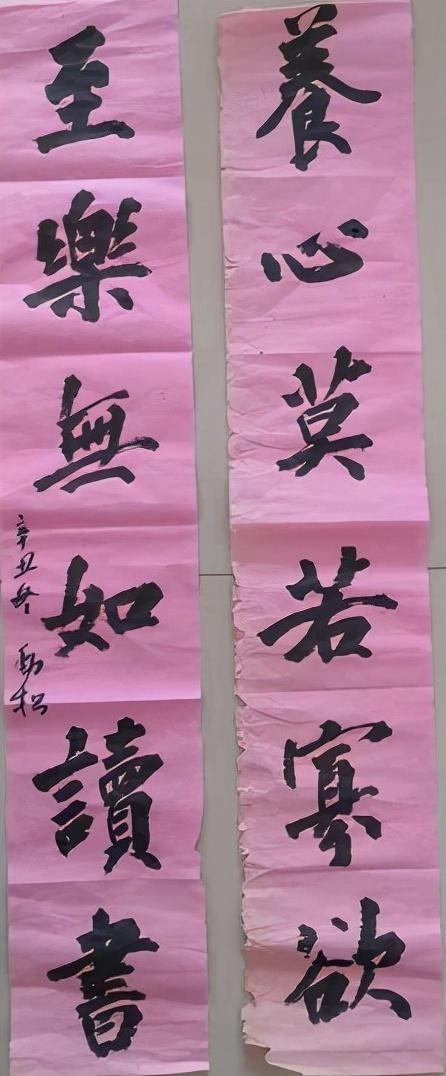 養心莫若寡欲
至樂無如讀書
辛丑冬 勁松